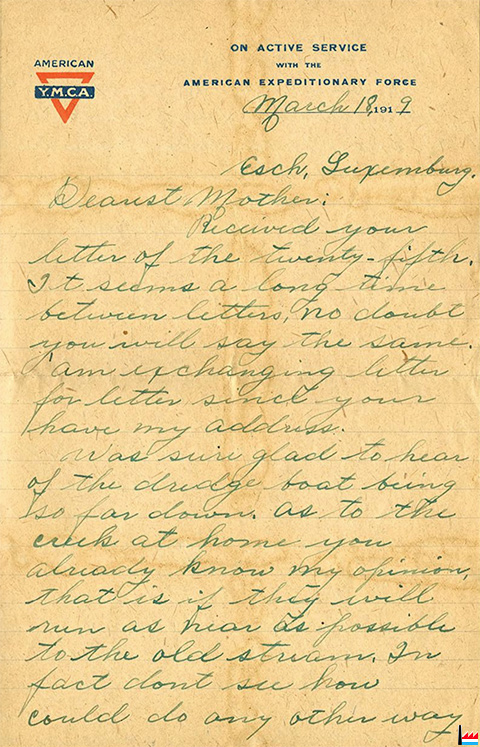 AMERICAN
Y.M.C.A.
ON ACTIVE SERVICE
WITH THE
AMERICAN EXPEDITIONARY FORCE
March 18, 1919
Esch, Luxemburg.
Dearest Mother:
Received your
letter of the twenty-fifth.
It seems a long time
between letters, no doubt
you will say the same.
I am exchanging letter
for letter since your
have my address.
Was sure glad to hear
of the dredge boat being
so far down. as to the
creek at home you
already know my opinion,
that is if they will
run as near as possible
to the old stream. In
fact dont see how
could do any other way